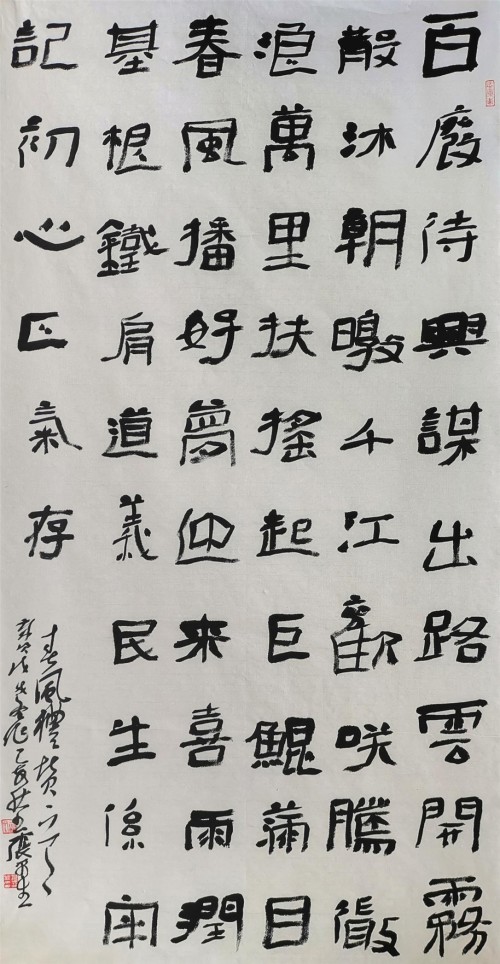 百廢待興謀出路雲開霧
散沐朝暾千江歡咲騰
浪萬里扶搖起巨鯤滿目
春風播好夢迎來喜雨潤
基根鐵肩道義民生係牢
記初心正氣存
春風禮贊